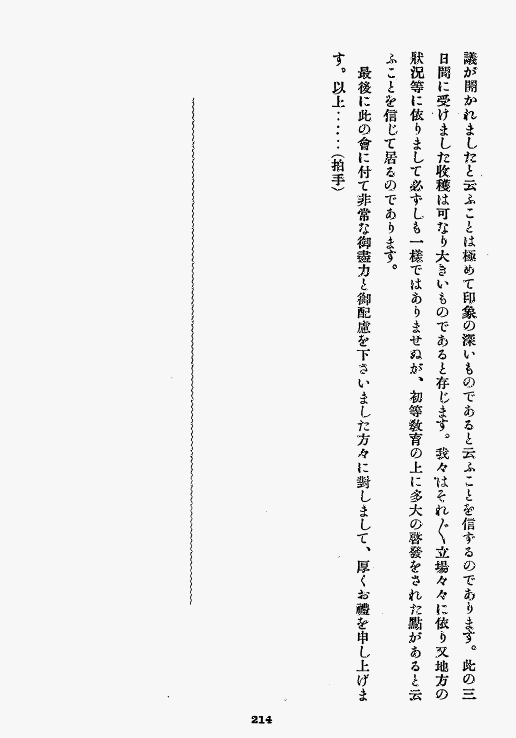 議が開かれましたと云ふことは極めて印象の深いものであると云ふことを信ずるのであります。此の三
日間に受けました收穫は可なり大きいものであると存じます。我々はそれ〲立場々々に依り又地方の
狀況等に依りまして必ずしも一樣ではありませぬが、初等敎育の上に多大の啓發をされた點があると云
ふことを信じて居るのであります。
最後に此の會に付て非常な御盡力と御配慮を下さいました方々に對しまして、厚くお禮を申し上げま
す。以上:::(拍手)
214